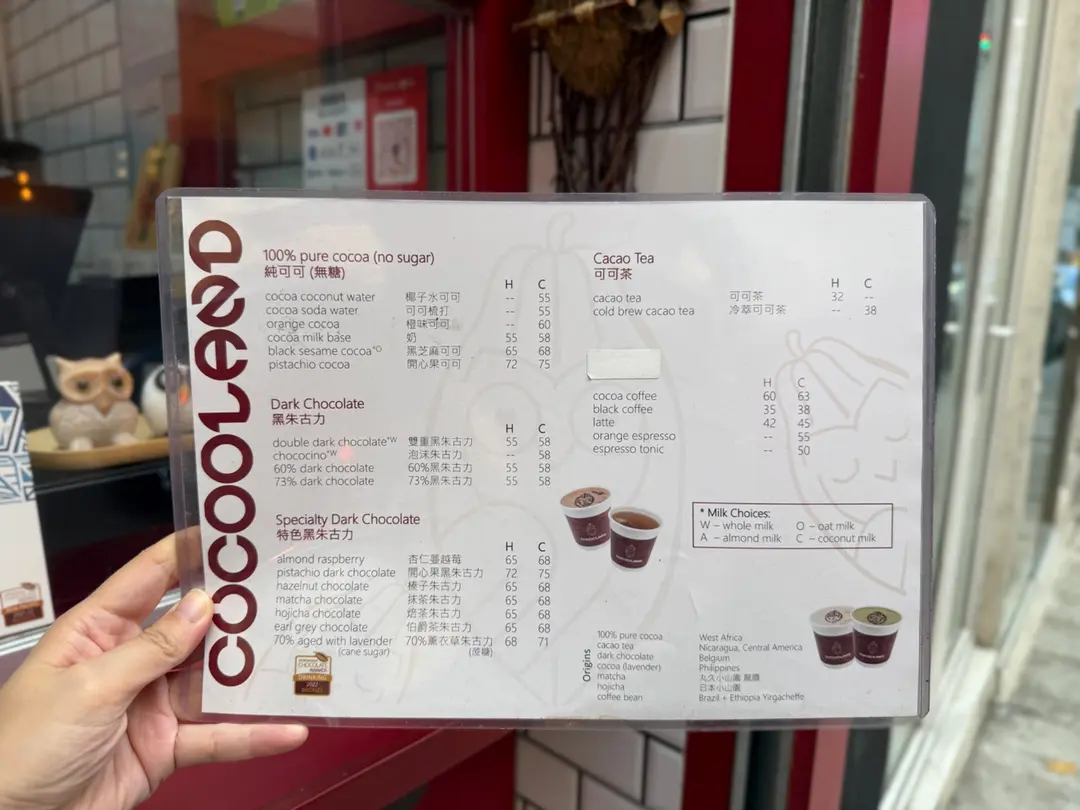 COCOOLAND
100% pure cocoa (no sugar)
純可可 (無糖)
H C
cocoa coconut water 椰子水可可 -- 55
cocoa soda water 可可梳打 -- 55
orange cocoa 橙味可可 -- 60
cocoa milk base 奶 55 58
black sesame cocoa*O 黑芝麻可可 65 68
pistachio cocoa 開心果可可 72 75
Dark Chocolate
黑朱古力
H C
double dark chocolate*W 雙重黑朱古力 55 58
chococino*W 泡沫朱古力 -- 58
60% dark chocolate 60%黑朱古力 55 58
73% dark chocolate 73%黑朱古力 55 58
Specialty Dark Chocolate
特色黑朱古力
H C
almond raspberry 杏仁蔓越莓 65 68
pistachio dark chocolate 開心果黑朱古力 72 75
hazelnut chocolate 榛子朱古力 65 68
matcha chocolate 抹茶朱古力 65 68
hojicha chocolate 焙茶朱古力 65 68
earl grey chocolate 伯爵茶朱古力 65 68
70% aged with lavender 70%薰衣草朱古力 68 71
(cane sugar) (蔗糖)
CHOCOLATE
AWARDS
DRINKING
2022
Cacao Tea
可可茶
H C
cacao tea 可可茶 32 --
cold brew cacao tea 冷萃可可茶 -- 38
H C
cocoa coffee 60 63
black coffee 35 38
latte 42 45
orange espresso -- 55
espresso tonic -- 50
* Milk Choices:
W – whole milk O – oat milk
A – almond milk C – coconut milk
Origins
100% pure cocoa West Africa
cacao tea Nicaragua, Central America
dark chocolate Belgium
cocoa (lavender) Philippines
matcha 丸久小山園
hojicha 日本小山園
coffee bean Brazil + Ethiopia Yirgacheffe